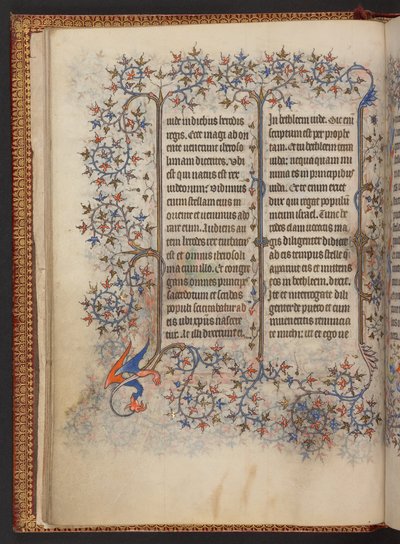 iude in diebus herodis
regis. Ecce magi ab ori
ente uenerunt iheroso
limam dicentes. Vbi
est qui natus est rex
iudeorum: vidimus
enim stellam eius in
oriente et uenimus ado
rare eum. Audiens au
tem herodes rex turbatus
est et omnis iherosoli
ma cum illo. Et congre
gans omnes principes
sacerdotum et scribas
populi sciscitabatur ab
eis ubi xpistus nascere
tur. At illi dixerunt ei.
In bethleem iude. Sic eni
scriptum est per prophe
tam. Et tu bethleem terra
iuda: nequaquam mi
nima es in principibus
iuda. Ex te enim exiet
dux qui regat populum
meum israel. Tunc he
rodes clam uocatis ma
gis diligenter didicit
ab eis tempus stelle q
apparuit eis et mittens
eos in bethleem. dixit.
Ite et interrogate dili
genter de puero et cum
inueneritis renuncia
te michi: ut et ego ue